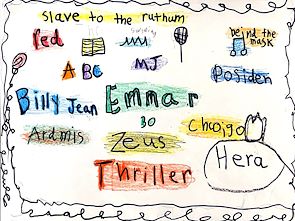 slave to the ruthum
red
beind the mask
A BC
MJ
Posiden
Billy Jean
Emmar
30
Chocgo
Ardmis
Zeus
Hera
Thriller